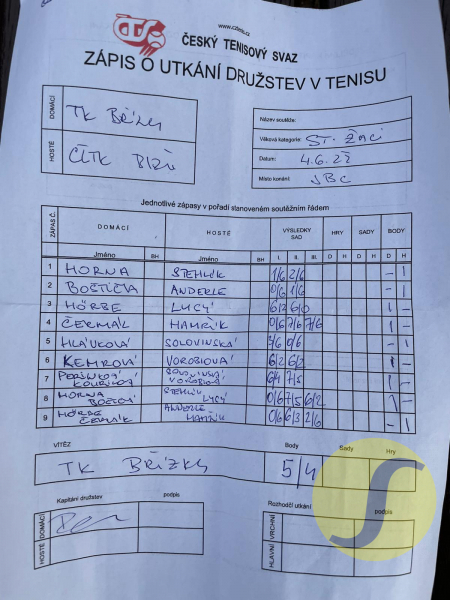 www.cztenis.cz
ČTS
ČESKÝ TENISOVÝ SVAZ
ZÁPIS O UTKÁNÍ DRUŽSTEV V TENISU
DOMÁCÍ TK BŘÍZKY
HOSTÉ
Název soutěže:
Věková kategorie: ST. ŽACI
Datum: 4.6.22
Místo konání: JBC
Jednotlivé zápasy v pořadí stanoveném soutěžním řádem
ZÁPAS Č. DOMÁCÍ HOSTÉ VÝSLEDKY SAD HRY SADY BODY
Jméno BH Jméno BH I. II. III. D H D H D H
1 HORNA STEHLÍK 1/6 2/6 - 1
2 ANDERLE 0/6 1/6 - 1
3 HÖRBE LUCÝ 6/3 6/0 1 -
4 ČERMÁK HAMŘÍK 0/6 7/6 7/6 1 -
5 HLAVKOVÁ SOLOVINSKÁ 0/6 - 1
6 KEMROVÁ VOROBIOVÁ 6/2 6/2 1 -
7 SOLOVINSKÁ VOROBIOVÁ 6/4 7/5 1 -
8 HORNA STEHLÍK LUCÝ 0/6 7/5 6/2 1 -
9 HÖRBE ČERMÁK ANDERLE HAMŘÍK 0/6 6/3 2/6 - 1
VÍTĚZ
TK BŘÍZKY
Body 5/4
Sady
Hry
Kapitáni družstev podpis
DOMÁCÍ
HOSTÉ
Rozhodčí utkání podpis
VRCHNÍ
HLAVNÍ
S